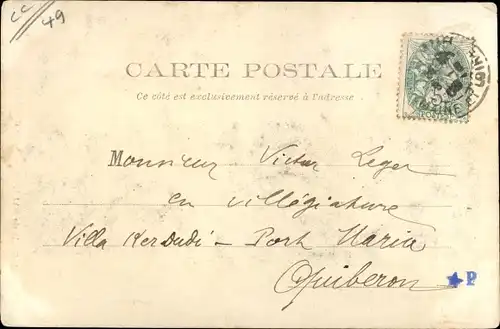 CC/49
CARTE POSTALE
Ce côté est exclusivement réservé à l'adresse
POSTES
Monsieur Victor Leger
en villégiature
Villa KerDudi - Port Maria
Quiberon
P